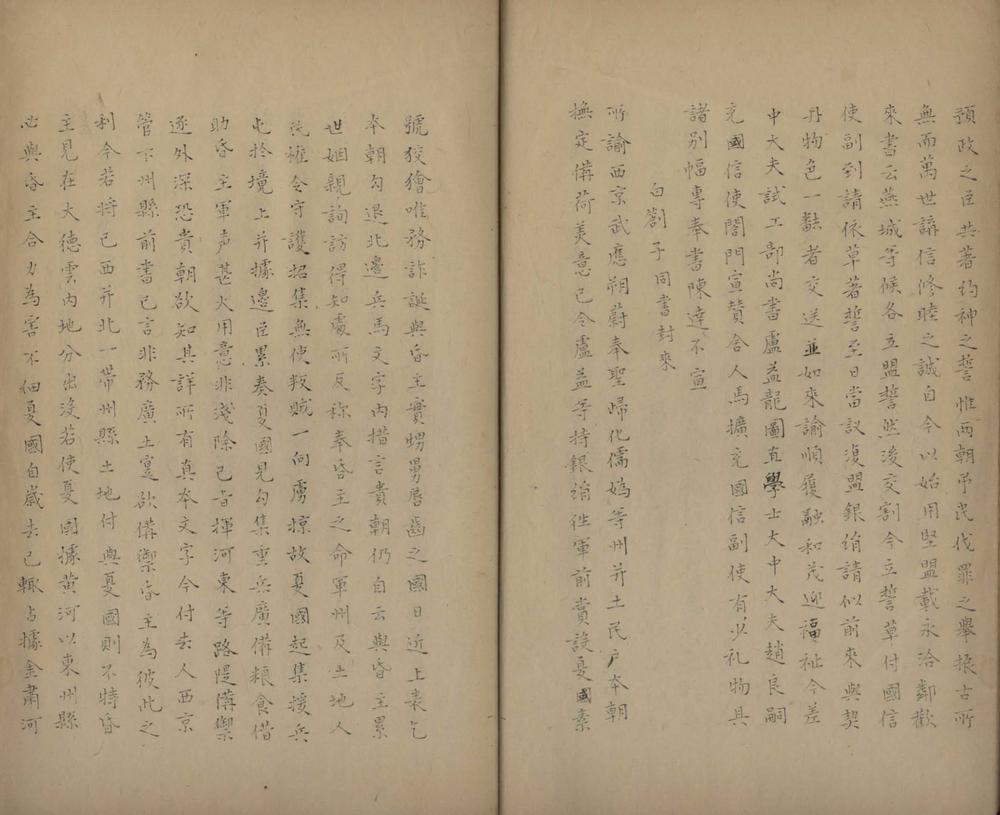 預政之臣共著約神之誓惟兩朝弔民伐罪之舉振古所
無而萬世講信修睦之誠自今以始用堅盟載永洽鄰歡
來書云燕城等候各立盟誓然後交割今立誓草付國信
使副到請依草著誓至日當議復盟銀絹請似前來與契
丹物色一般者交送並如來諭順履融和茂迎福祉今差
中大夫試工部尚書盧益龍圖直學士大中大夫趙良嗣
充國信使閤門宣贊舍人馬擴充國信副使有少礼物具
諸別幅專奉書陳達不宣
白劄子同書封來
所諭西京武應朔蔚奉聖歸化儒媯等州并土民户本朝
撫定備荷美意已令盧益等持銀絹徃軍前賞設夏國素
號狡獪唯務詐誕與昏主實甥舅唇齒之國日近上表乞
本朝勾退北邊兵馬文字內措言貴朝仍自云與昏主累
世姻親詢訪得知處所反称奉昏主之命軍州及土地人
民權令守護招集無使叛賊一向虜掠故夏國起集援兵
屯扵境上并據邊臣累奏夏國見勾集重兵廣備粮食借
助昏主軍声甚大用意非淺除已旨揮河東等路隄備禦
逐外深恐貴朝欲知其詳所有真本文字今付去人西京
管下州縣前書已言非務廣土寔欲備禦昏主為彼此之
利今若將已西并北一帶州縣土地付與夏國則不特昏
主見在大德雲內地分出沒若使夏國據黄河以東州縣
必與昏主合力為害不細夏國自歲去已輙占據金肅河